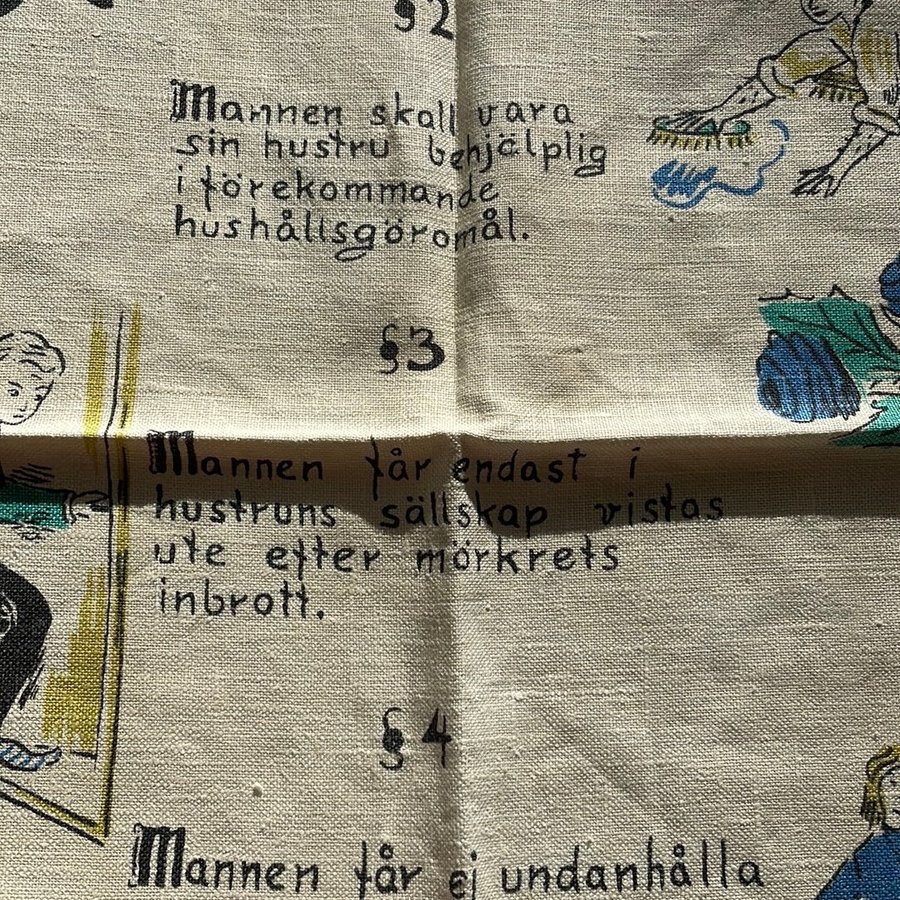 §2
Mannen skall vara
sin hustru behjälplig
i förekommande
hushållsgöromål.
§3
Mannen får endast i
hustruns sällskap vistas
ute efter mörkrets
inbrott.
§4
Mannen får ej undanhålla